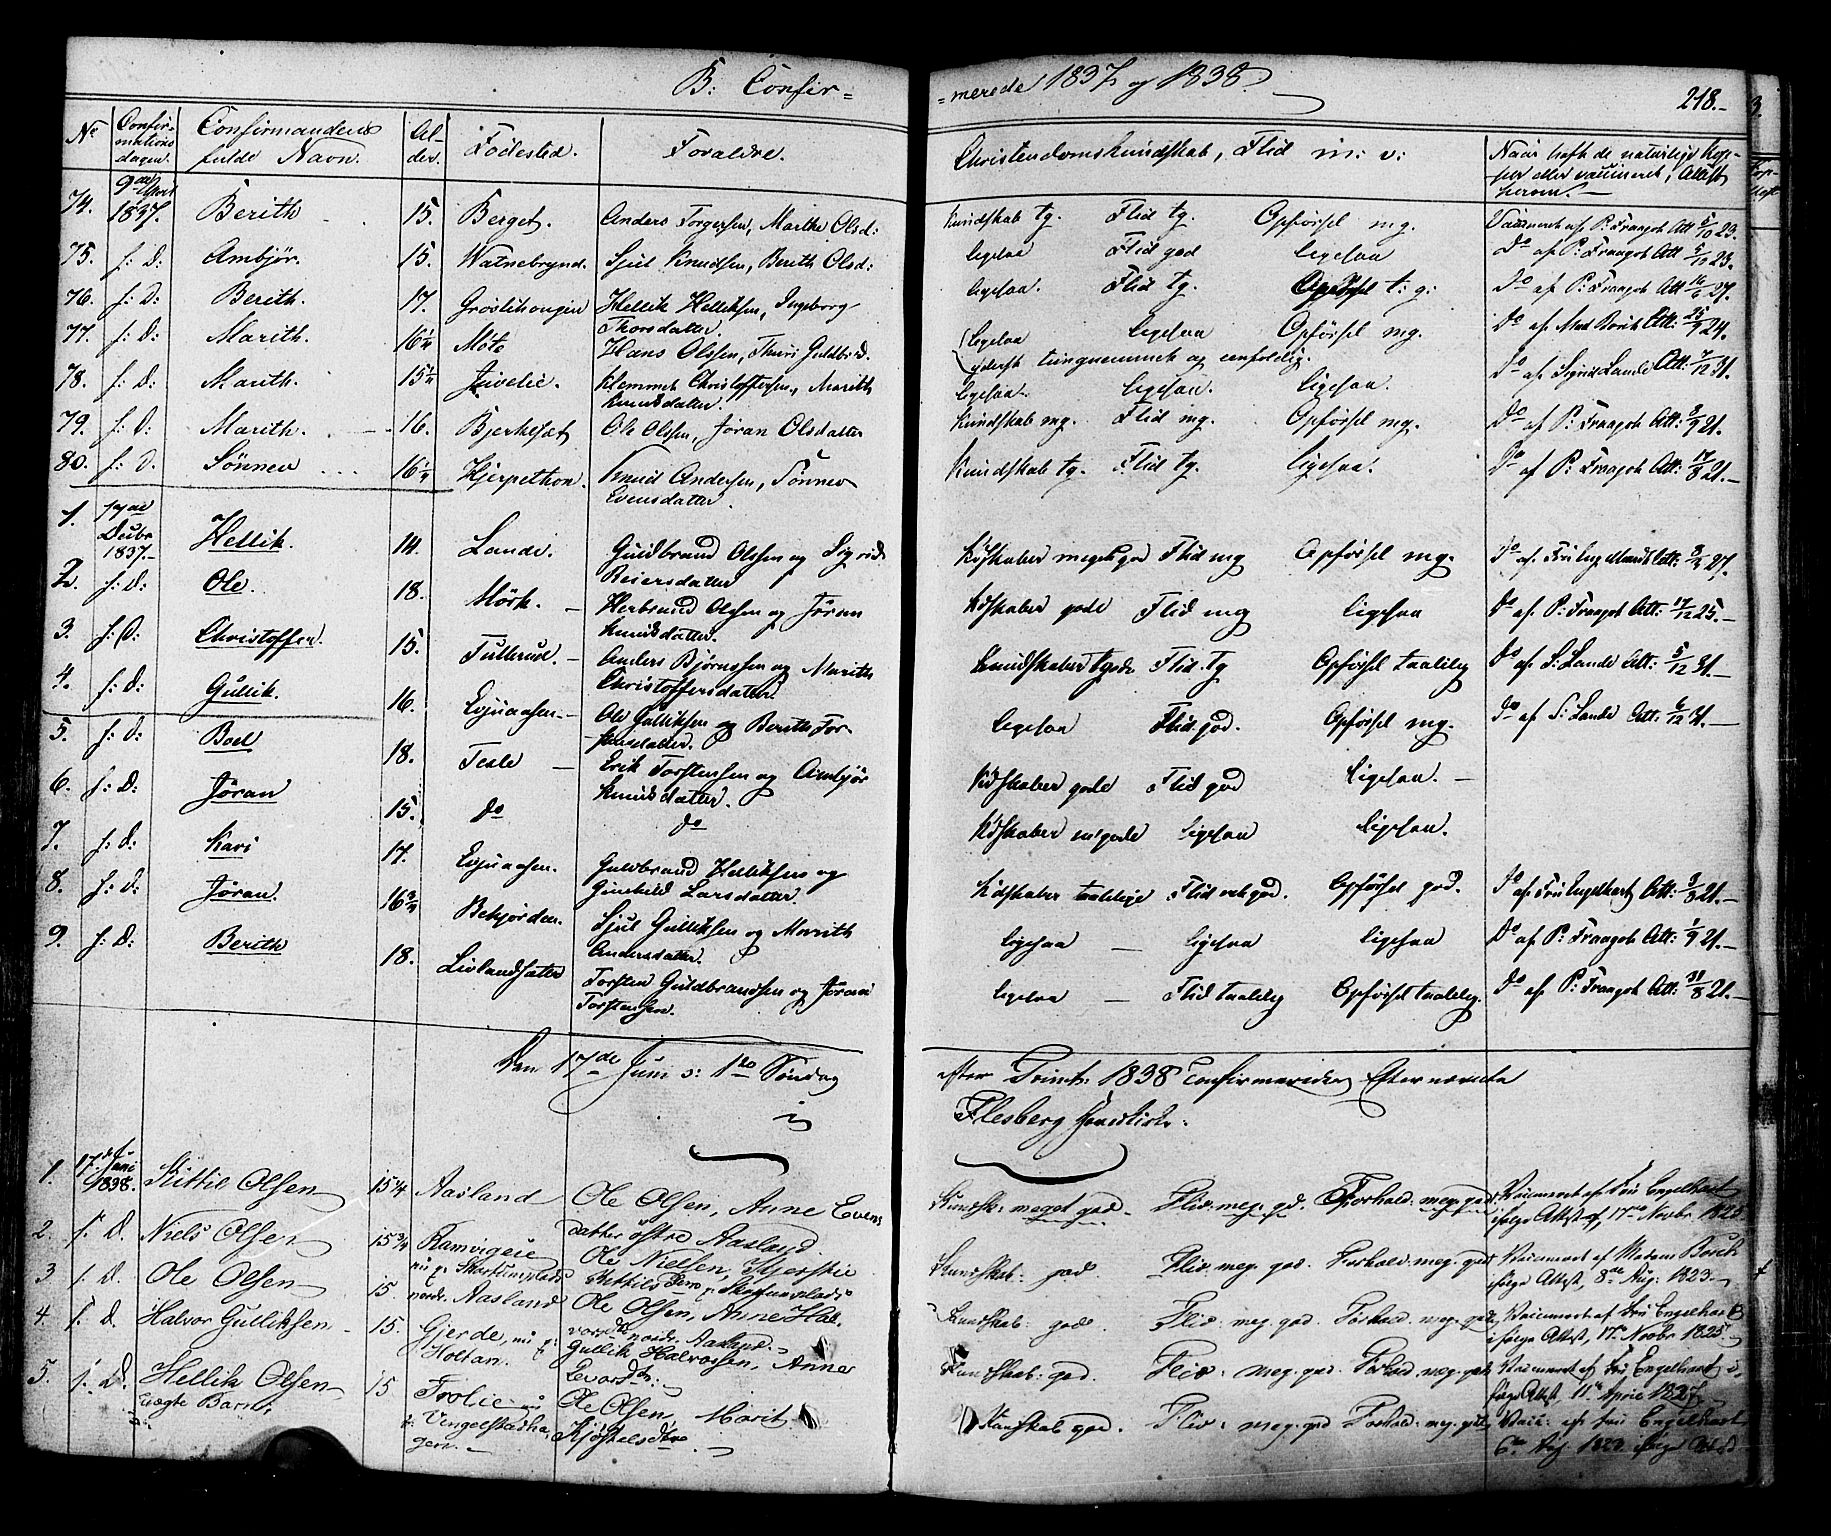 B: Confir=
=merede 1837 og 1838.
218.-
Nr Confirmations dagen. Confirmandens fulde Navn. Alder. Födested. Foraldre. Christendomskundskab, Flid m: v: Naar hafte de naturlige Kopper eller vaccineret, Attest herom.-
74. 9de April 1837. Berith 15. Berget. Anders Torgersen, Marthe Olsd: Kundskab tg. Flid tg. Opförsel mg. Vaccineret af P: Fraagot Att 5/10 23.
75. s: D: Ambjör. 15. Watnebrynd. Sjul Knudsen, Berith Olsd: ligesaa Flid god ligesaa Do af P: Fraagot Att. 23.
76. s: D: Berith. 17. Hellik Helliksen, Ingeborg Thorsdatter. ligesaa. Flid tg. Opförsel t: g: Do af P: Fraagot Att 27.
77. s: D: Marith. 16 1/4 Möte Hans Olssen, Thuri Guldbrd. ligesaa ligesaa Opförsel mg. Do af Mad Bruk Att: 25/9 24.
yderst tungnemmet og eenfoldig.
78. s: D: Marith. 15 1/4 Juvelie. Klemmet Christoffersen, Marith Knudsdatter. ligesaa. ligesaa. ligesaa. Do af Sigrid Lande Att: 7/12 31.
79. s: D: Marith. 16. Bjerkesæt Ole Olssen, Jöran Olsdatter Kundskab mg. Flid mg. Opförsel mg. Do af P: Fraagot Att: 3/9 21.
80. s: D. Sönnev 16 1/4 Hjerpethon. Knud Andersen, Sönnev Evensdatter. Kundskab tg. Flid tg. ligesaa. Do af P: Fraagot Att: 17/8 21.-
1. 17de Decbr 1837.- Hellik. 14. Lande. Guldbrand Olssen og Sigrid Reiersdatter Kdskaber meget god Flid mg Opförsel mg. Do af Fru Att: 27.
2. s: D: Ole. 18. Mörk.- Herbrand Olssen og Jöran Knudsdatter. Kdskaber gode Flid mg ligesaa Do af P: Fraagot Att: 17/12 25.-
3. s: D: Christoffer. 15. Tullerud.- Anders Björnssen og Marith Christoffersdatter. Kundskaber tgode Flid tg Opförsel taalelig Do af S: Lande Att: 5/12 31.-
4. s: D: Gullik. 16. Evjuaasen.- Ole Gulliksen og Berith Torstensdatter. ligesaa Flid god. Opförsel mg. Do af S: Lande Att: 6/12 31.-
5. s: D: Boel 18. Teale - Erik Torstensen og Ambjör Knudsdatter. Kdskaber gode Flid god ligesaa.-
6. s: D: Jöran 15. do do Kdskaber mgode ligesaa ligesaa.
7. s: d: Kari 17. Evjuaasen. Guldbrand Helliksen og Gunhild Larsdatter. Kdskaber taalelige Flid god. Opförsel god. Do af Fru Engelhart Att: 3/8 21.-
8. s: D: Jöran. 16 3/4 Bekjorden. Sjul Gulliksen og Marith Andersdatter. ligesaa - ligesaa ligesaa Do af P: Fraagot Att: 1/9 21.-
9. s: D: Berith 18. Livlandsæter Torsten Guldbrandsen og Jöran Torstensen. ligesaa - Flid taalelig Opförsel taalelig. Do af P: Fraagot Att: 31/8 21.-
Den 17de Juni o: 1ste Söndag efter Trinit: 1838 Confirmereder Efternævnte
i Flesberg Hovedkirke:
1. 17de Juni 1838. Kittil Olsen 15 1/4 Aasland Ole Olsen, Anne Evensdatter östre Aasland. Kundsk: meget god. Fliv: meg. gd. Forhold: meg. god. Vaccineret af Fru Engelhart ifölge Attest af 17de Novbr 1825
2. s. D. Niels Olsen 15 3/4 Ramvigeie nu p: Ole Nielsen, Kjerstie Kittilsdtr Kundskab: god. Fliv: meg. god. Forhold: meg. god Vaccineret af Madam Borch ifölge Attest, 8de Aug: 1823.
3 s. D. Ole Olsen 15. nordr. Aasland Ole Olsen, Anne Halvorsdtr nordr. Aasland.- Kundskab: god. Fliv: meg. god. Forhold: meg. god Vaccineret af Fru Engelhart ifölge Attest, 17de Novbr 1825.
4. s. D. Halvor Gulliksen 15. Gjerde, nu p: Holtan. Gullik Halvorsen, Anne Kundskab: god. Fliv: meg. god Forhold: meg. god Vaccineret af Fru Engelhart ifölge Attest, 11te April 1827.
5. s. D. Hellik Olsen uægte Barn, 15 Trolie nu p: Ole Olsen, Marit Kundskab god. Fliv: meg. god Forhold: meg. god Vacc: af Fru Engelhart 6te Aug. 1823 ifölge Attest